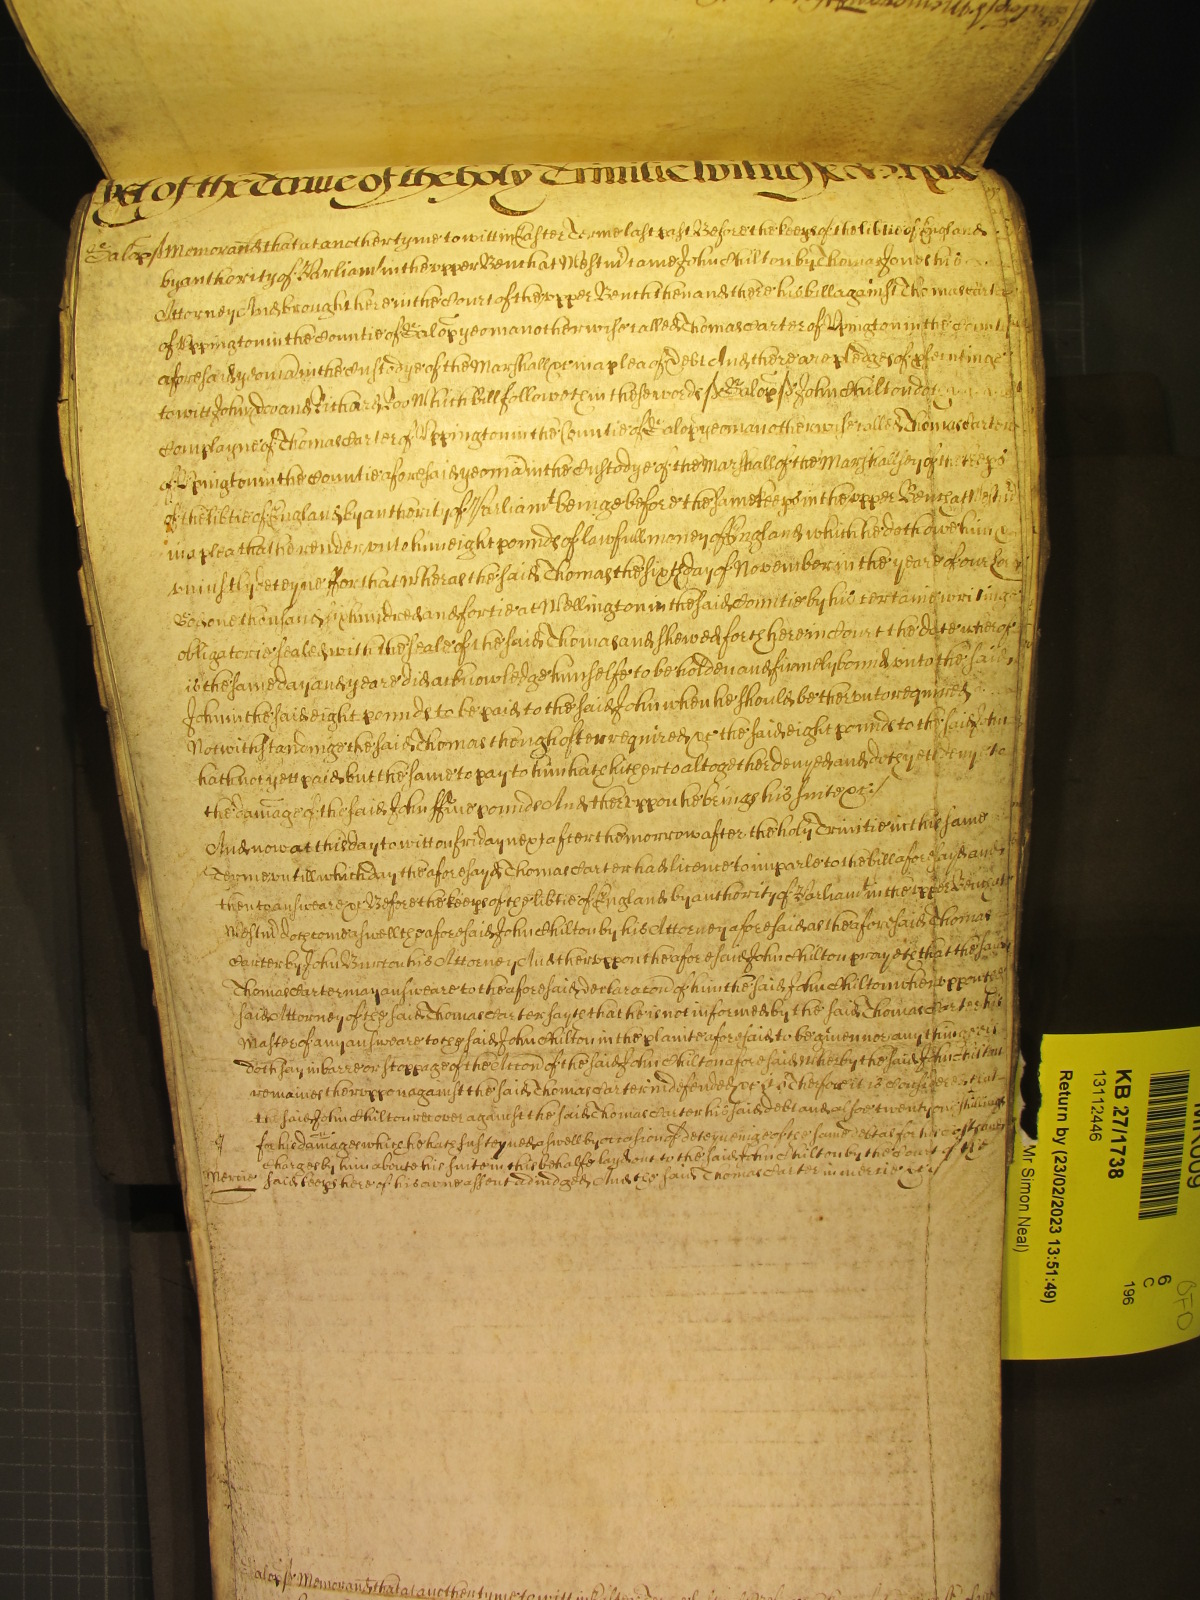 yet of the Terme of the holy Trinitie Witnes
Salop ss Memorand that at another tyme to witt in Easter Terme last past Before the keeps of the libtie of England
by authority of Parliamt in the upper Bench at Westmr came John Chilton by Thomas Jones his
Attorney And brought here in the Court of the upper Bench then and there his bill against Thomas Carter
of Uppington in the Countie of Salop yeoman otherwise called Thomas Carter of Upington in the Countie
aforesaid yeoman in the Custodye of the Marshall &c in a plea of Debt And there are pledges of psecutinge
to witt John Doo and Richard Roo Which Bill followeth in these words ss Salop ss John Chilton doth
Complayne of Thomas Carter of Uppington in the Countie of Salop yeoman otherwise called Thomas Carter
of Upington in the Countie aforesaid yeoman in the Custodye of the Marshall of the Marshallsey of the keeps
of the libtie of England by authority of Parliamt beinge before the same keeps in the upper Bench at Westmr
in a plea that he render unto him eight pounds of lawfull money of England which he doth owe him &
uniustly deteyne For that Wheras the said Thomas the sixth day of November in the yeare of our Lord
God one thousand six hundred and fortie at Wellington in the said Countie by his certaine writinge
obligatorie sealed with the seale of the said Thomas and shewed forth here in Court the date wherof
is the same day and yeare did acknowledge himselfe to be holden and firmely bound unto the said
John in the said eight pounds to be paid to the said John when he should be therunto required
Notwithstandinge the said Thomas though often required &c the said eight pounds to the said John
hath not yett paid but the same to pay to him hath hitherto altogether denyed and doth yett deny to
the damage of the said John Five pounds And therupon he brings his suite &c /
And now at this day to witt on Friday next after the morrow after the holy Trinitie in this same
Terme untill which day the aforesayd Thomas Carter had licence to imparle to the bill aforesaid and
then to answeare &c Before the keeps of the libtie of England by authority of Parliamt in the upper Bench at
Westmr doth come aswell the aforesaid John Chilton by his Attorney aforesaid as the aforesaid Thomas
Carter by John Burton his Attorney And therupon the aforesaid John Chilton prayeth that the said
Thomas Carter may answeare to the aforesaid declaracon of him the said John Chilton wherupon the
said Attorney of the said Thomas Carter sayth that he is not informed by the said Thomas Carter his
Master of any answeare to the said John Chilton in the plainte aforesaid to be given nor any thinge els
doth say in barre or stoppage of the Accon of the said John Chilton aforesaid wherby the said John Chilton
remaines therupon against the said Thomas Carter indefended &c Therfore it is considered that
the said John Chilton recover against the said Thomas Carter his said debt and alsoe twenty one shillings
for his damages which he hath susteyned aswell by occasion of deteyneinge of the same debt as for his costs and
charges by him aboute his suite in this behalfe layd out to the said John Chilton by the Court of the
Mercie said keeps here of his owne assent adiudged And the said Thomas Carter in mercie &c /
Salop ss Memorand that at another tyme to witt in Easter
KB 27/1738
13112446
Return by (23/02/2023 13:51:49)
Mr Simon Neal)
6
C
196